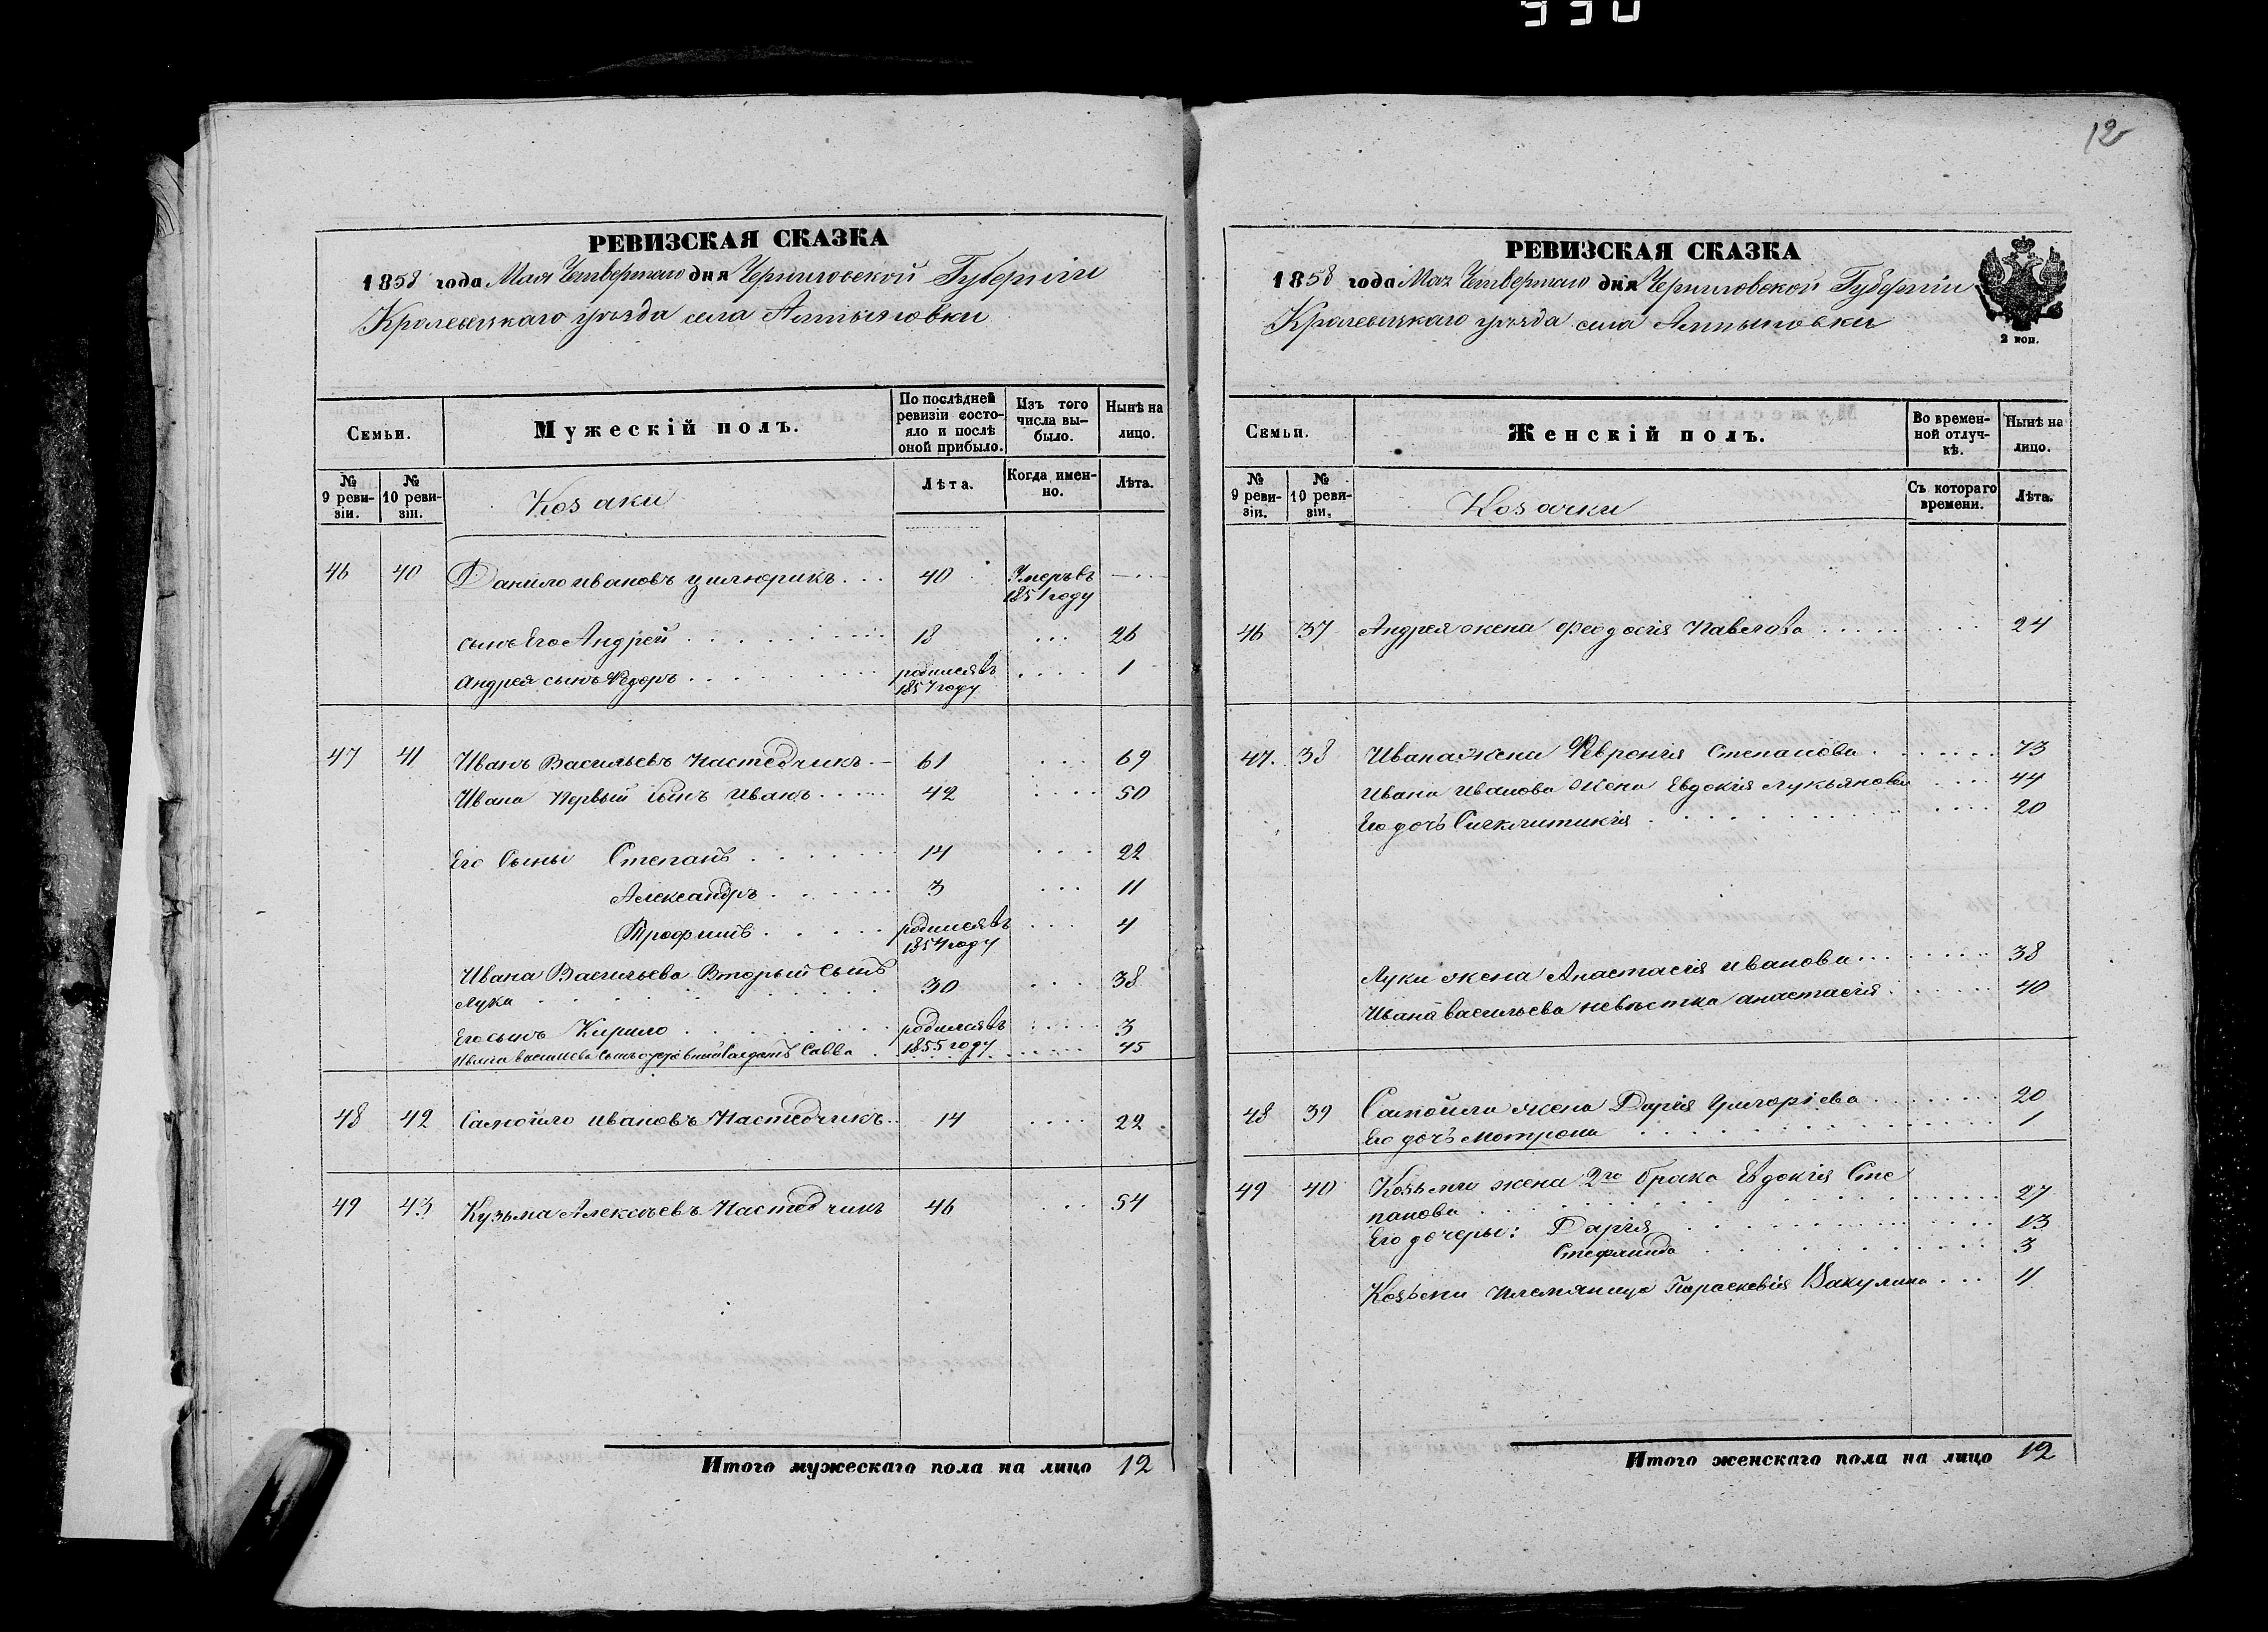 990
12
РЕВИЗСКАЯ СКАЗКА
1858 года Мая Четвертаго дня Черниговской Губерніи
Кролевецкаго уѣзда села Алтыновки
Семьи.
Мужескій полъ.
По послѣдней ревизіи состояло и послѣ оной прибыло.
Изъ того числа выбыло.
Нынѣ на лицо.
№ 9 ревизіи.
№ 10 ревизіи.
Козаки
Лѣта.
Когда именно.
Лѣта.
46 40 Данило Ивановъ Цилюрикъ . . . 40 Умеръ въ 1851 году —
сынъ Его Андрей 18 . . . 26
Андрея сынъ Федоръ родился въ 1857 году . . . . 1
47 41 Иванъ Васильевъ Настедчикъ . — 61 . . . 69
Ивана Первый сынъ Иванъ 42 . . . . 50
Его Сыны Степанъ 14 . . . 22
Александръ 3 . . . 11
Трофимъ родился въ 1854 году . . . 4
Ивана Васильева Вторый сынъ
Лука 30 . . . 38
Его сынъ Кирило родился въ 1855 году 3
Ивана Васильева сынъ отставной Солдатъ Савва 45
48 42 Самойло Ивановъ Настедчикъ . . 14 . . . . 22
49 43 Кузьма Алексѣевъ Настедчикъ 46 . . . 54
Итого мужескаго пола на лицо 12
РЕВИЗСКАЯ СКАЗКА
1858 года Мая Четвертаго дня Черниговской Губерніи
Кролевецкаго уѣзда села Алтыновки
2 коп.
Семьи.
Женскій полъ.
Во временной отлучкѣ.
Нынѣ на лицо.
№ 9 ревизіи.
№ 10 ревизіи.
Козачки
Съ котораго времени.
Лѣта.
46 37 Андрея жена Феодосія Павлова 24
47. 38 Ивана жена Февронія Степанова 73
Ивана Иванова жена Евдокія Лукьянова 44
Его дочь Сигклитикія 20
Луки жена Анастасія Иванова 38
Ивана Васильева невѣстка Анастасія 40
48 39 Самойла жена Дарія Григоріева 20
Его дочь Мотрона 1
49 40 Козьмы жена 2го брака Евдокія Сте
панова 27
Его дочеры: Дарія 13
Стефанида 3
Козьмы племяница Параскевія Вакулина . . . 11
Итого женскаго пола на лицо 12